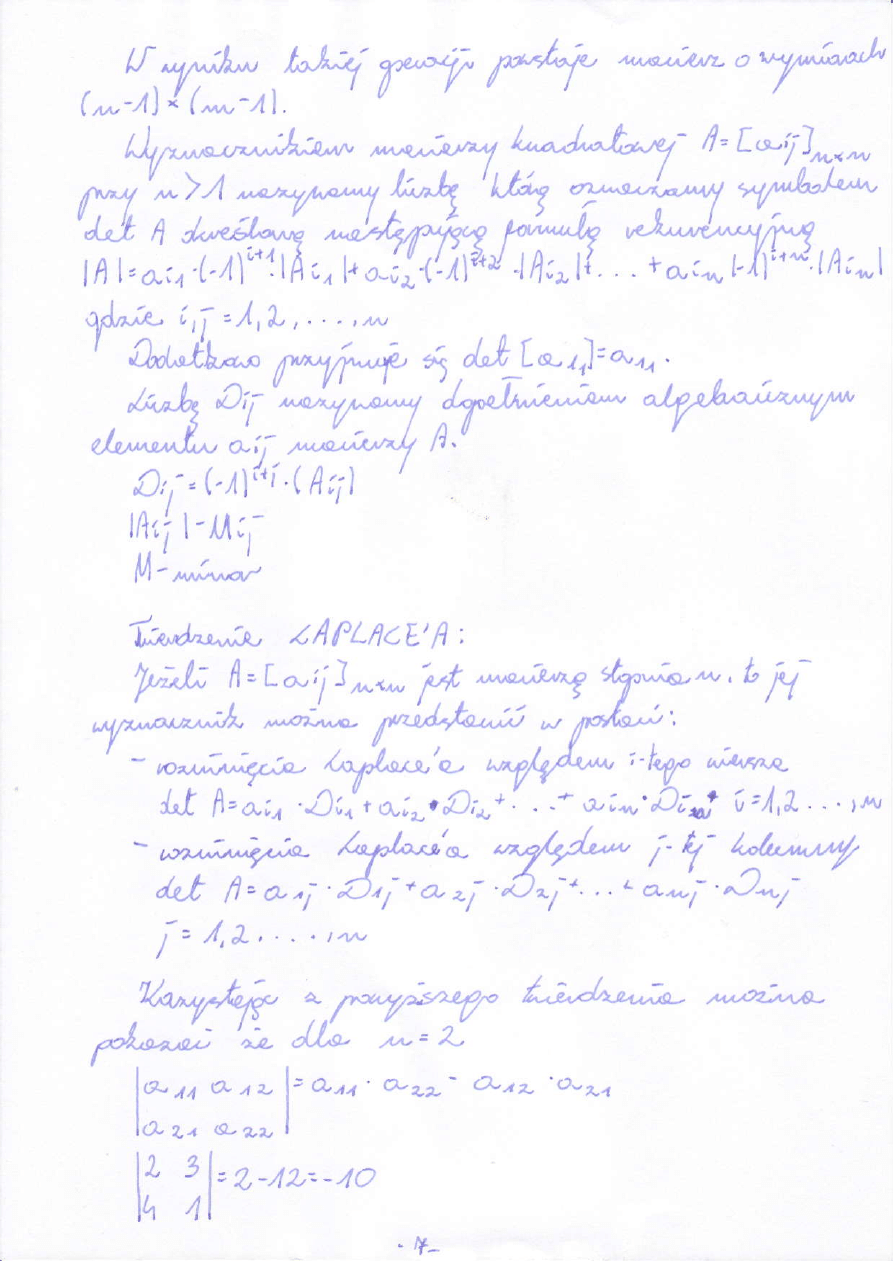 W wyniku takiej operacji powstaje macierz o wymiarach
(n-1)×(m-1).
Wyznacznikiem macierzy kwadratowej A=[aij]n×n
przy n>1 nazywamy liczbę którą oznaczamy symbolem
det A określoną następującą formułą rekurencyjną
|A|=ai1·(-1)^i+1·|Ai1|+ai2·(-1)^i+2·|Ai2|+...+ain(-1)^i+n·|Ain|
gdzie i,j=1,2,...,n
Dodatkowo przyjmuje się det [a11]=a11.
Liczbę Dij nazywamy dopełnieniem algebraicznym
elementu aij macierzy A.
Dij=(-1)^i+j·(Aij)
|Aij|-Mij
M-minor
Twierdzenie LAPLACE'A:
Jeżeli A=[aij]n×n jest macierzą stopnia n, to jej
wyznacznik można przedstawić w postaci:
- rozwinięcia Laplace'a względem i-tego wiersza
det A=ai1·Di1+ai2·Di2+...+ain·Din, i=1,2...,n
- rozwinięcia Laplace'a względem j-tej kolumny
det A=a1j·D1j+a2j·D2j+...+anj·Dnj
j=1,2....,n
Korzystając z powyższego twierdzenia można
pokazać że dla n=2
|a11 a12|=a11·a22-a12·a21
|a21 a22|
|2 3|=2-12=-10
|4 1|
-17-